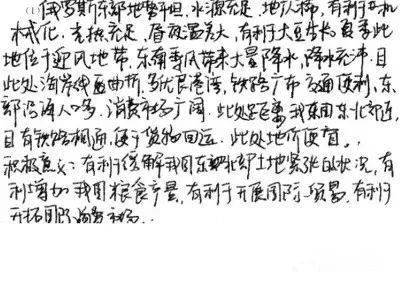 俄罗斯东部地势平坦,水源充足,地广人稀,有利于机
械化,光热充足,昼夜温差大,有利于大豆生长,夏季此
地位于迎风地带,东南季风带来大量降水,降水充沛.且
此处海岸线曲折,多优良港湾,铁路广布交通便利,东
部沿海人口多,消费市场广阔.此处距离我国东北部近,
且有铁路相通,便于货物回运.此处地价便宜。
积极意义:有利于缓解我国东北部土地紧张的状况,有
利增加我国粮食产量,有利于开展国际贸易,有利于
开拓国际市场.